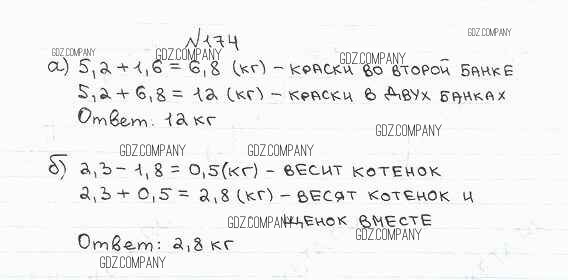 GDZ.COMPANY
№174
GDZ.COMPANY GDZ.COMPANY GDZ.COMPANY
а) 5,2 + 1,6 = 6,8 (кг) – КРАСКИ ВО ВТОРОЙ БАНКЕ
5,2 + 6,8 = 12 (кг) – КРАСКИ В ДВУХ БАНКАХ
Ответ: 12 кг
GDZ.COMPANY
GDZ.COMPANY GDZ.COMPANY
б) 2,3 – 1,8 = 0,5(кг) – ВЕСИТ КОТЕНОК
2,3 + 0,5 = 2,8 (кг) – ВЕСЯТ КОТЕНОК И
GDZ.COMPANY ЩЕНОК ВМЕСТЕ
GDZ.COMPANY
Ответ: 2,8 кг
GDZ.COMPANY